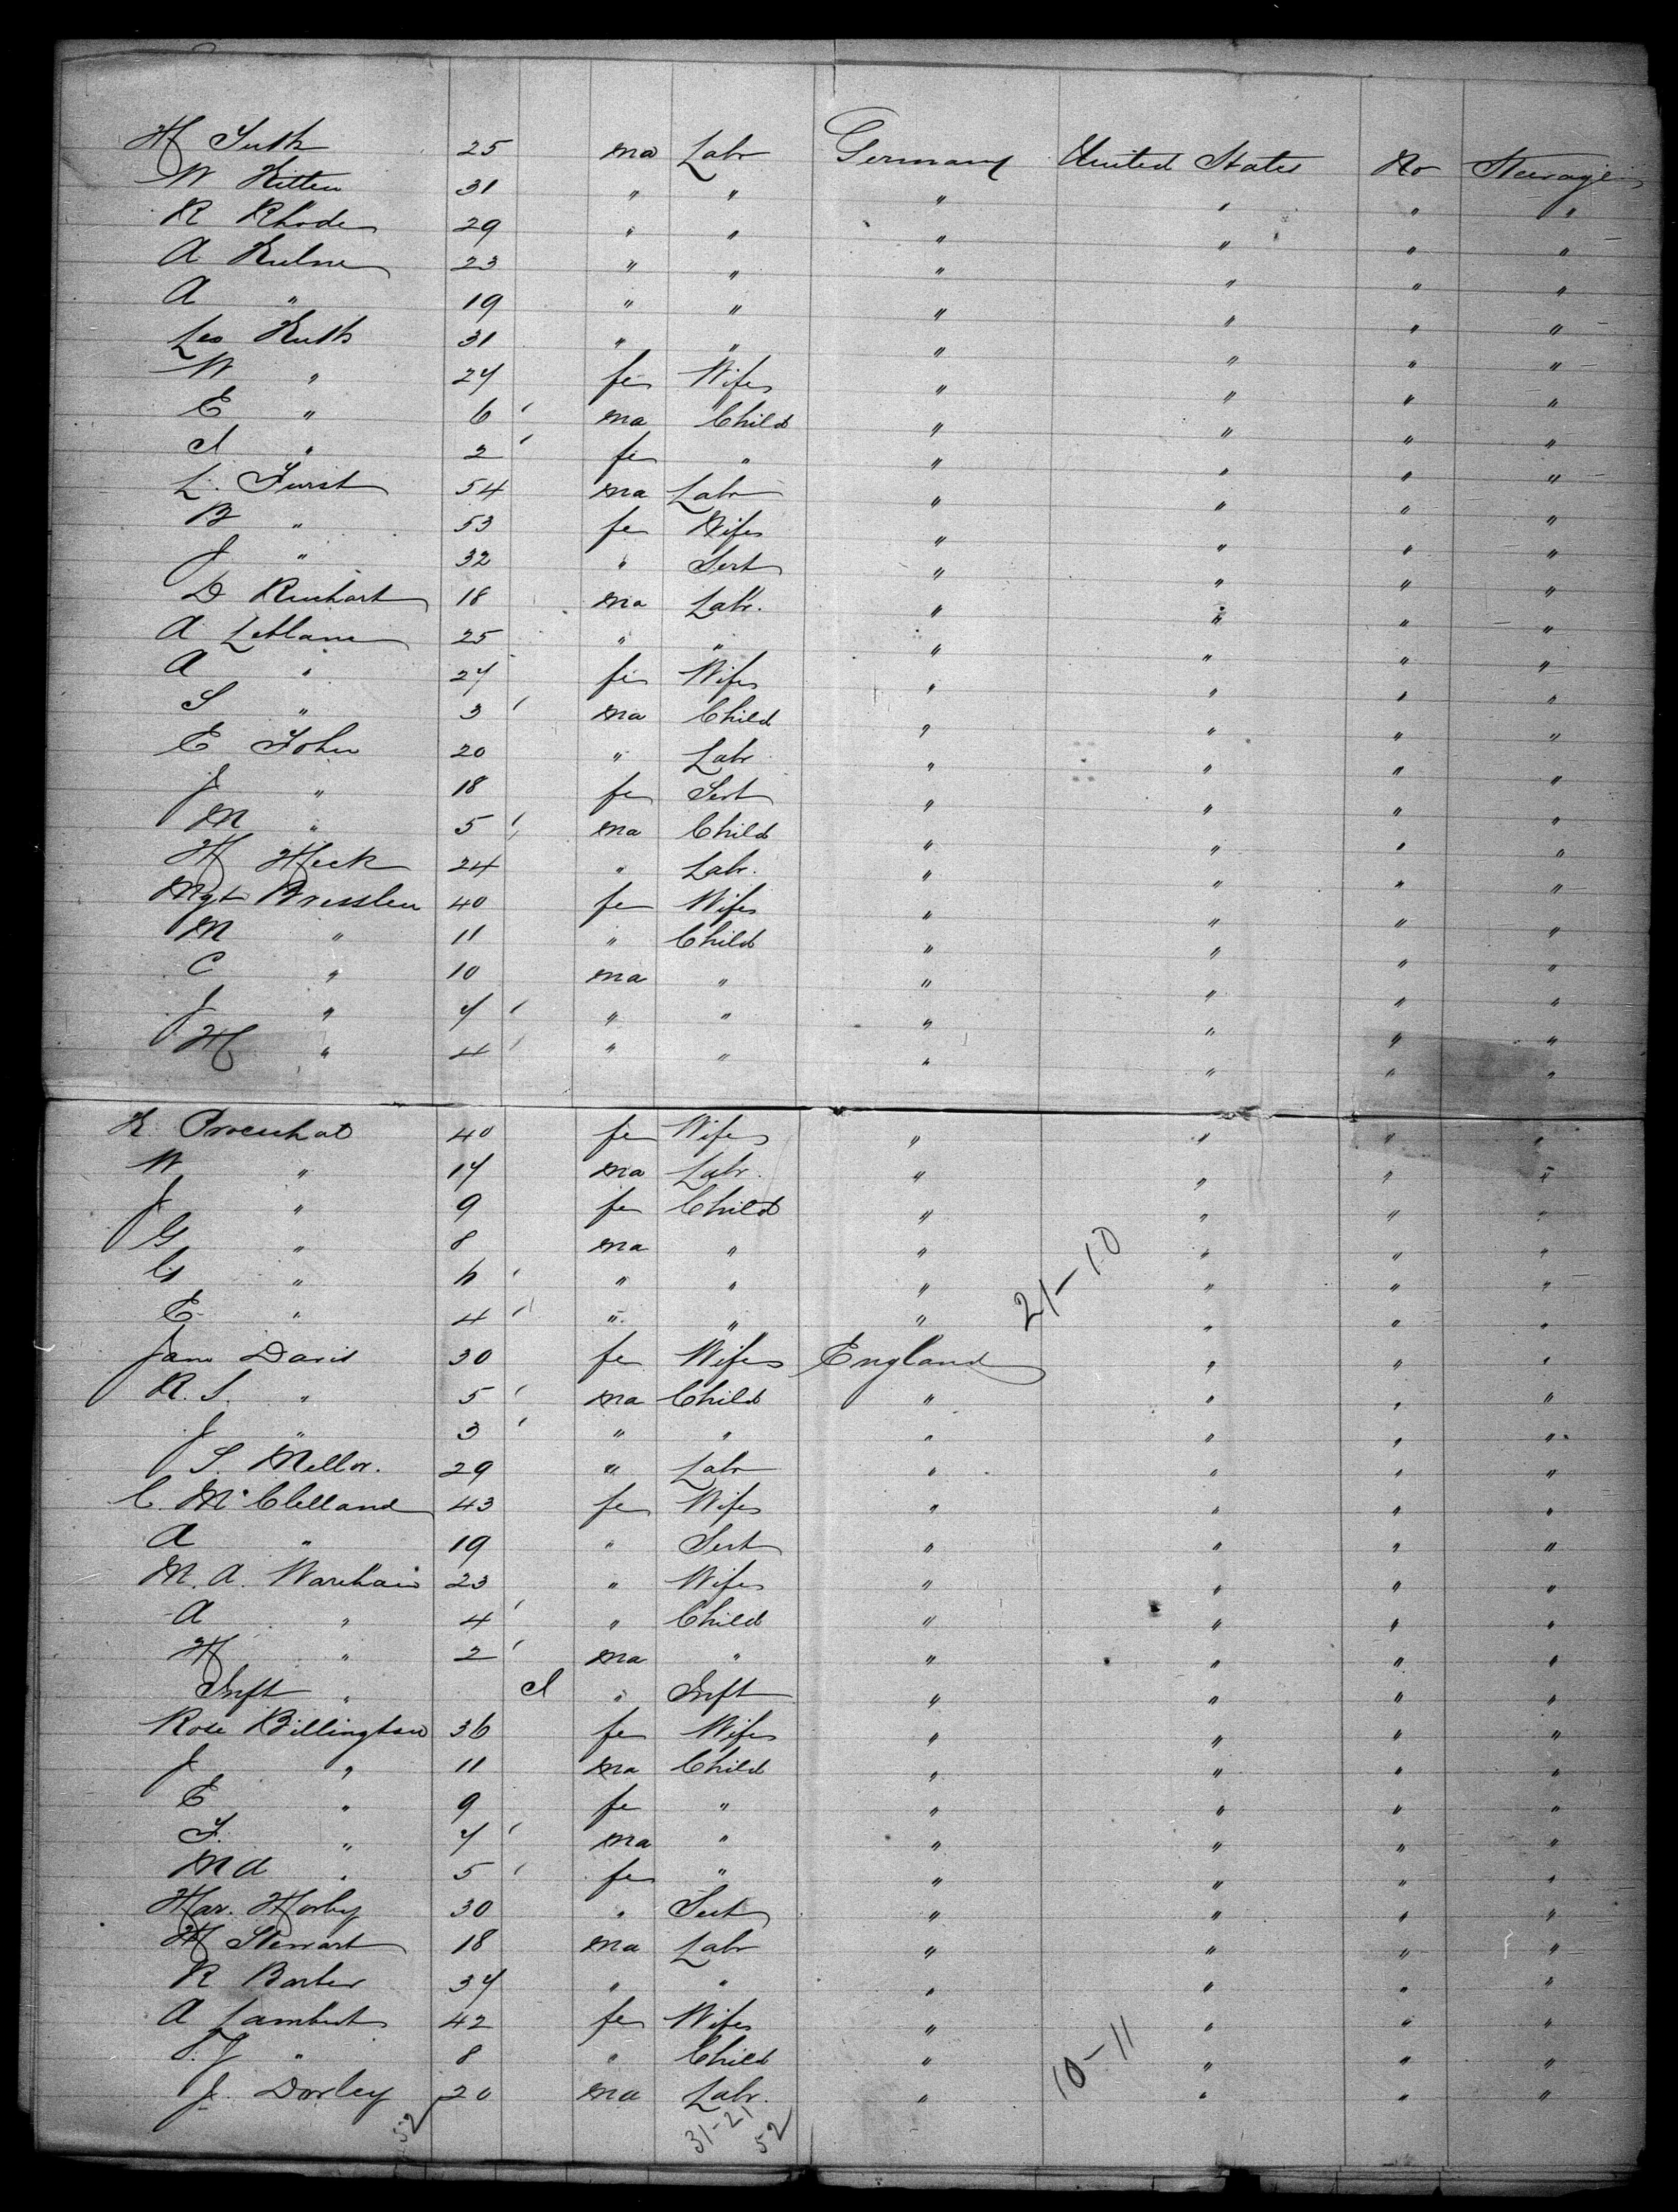 H Suth 25 ma Labr Germany United States No Steerage
W Kitten 31 " " " " " "
R Rhode 29 " " " " " "
A Kulne 23 " " " " " "
A " 19 " " " " " "
Leo Kuth 31 " " " " " "
W " 27 fe Wife " " " "
E " 6 ma Child " " " "
I " 2 fe " " " " "
L. Furst 54 ma Labr " " " "
B " 53 fe Wife " " " "
J " 32 " Sert " " " "
D Reichart 18 ma Labr. " " " "
A Leblanc 25 " " " " " "
A " 27 fe Wife " " " "
S " 3 ma Child " " " "
E John 20 " Labr " " " "
J " 18 fe Sert " " " "
M " 5 ma Child " " " "
H Heck 24 " Labr. " " " "
Mgt Bresslen 40 fe Wife " " " "
M " 11 " Child " " " "
C " 10 ma " " " " "
J " 7 " " " " " "
H " 4 " " " " " "
K 40 fe Wife " " " "
W " 17 ma Labr. " " " "
J " 9 fe Child " " " "
G " 8 ma " " " " "
" 6 " " " " " "
21-10
E " 4 " " " " " "
Jane Davis 30 fe Wife England " " "
R. S. " 5 ma Child " " " "
J " 3 " " " " " "
S. Mellor. 29 " Labr " " " "
C. McClelland 43 fe Wife " " " "
A " 19 " Sert " " " "
M. A. Wareham 23 " Wife " " " "
A " 4 " Child " " " "
H " 2 ma " " " " "
Inft " I " Inft " " " "
Rose Billington 36 fe Wife " " " "
J " 11 ma Child " " " "
E " 9 fe " " " " "
F. " 7 ma " " " " "
M A " 5 fe " " " " "
Har. Horby 30 " Sert " " " "
H Stewart 18 ma Labr " " " "
R Barber 37 " " " " " "
A Lambert 42 fe Wife " " " "
T. J " 8 " Child " " " "
10-11
J. Dorley 20 ma Labr. " " " "
52 31-21 52